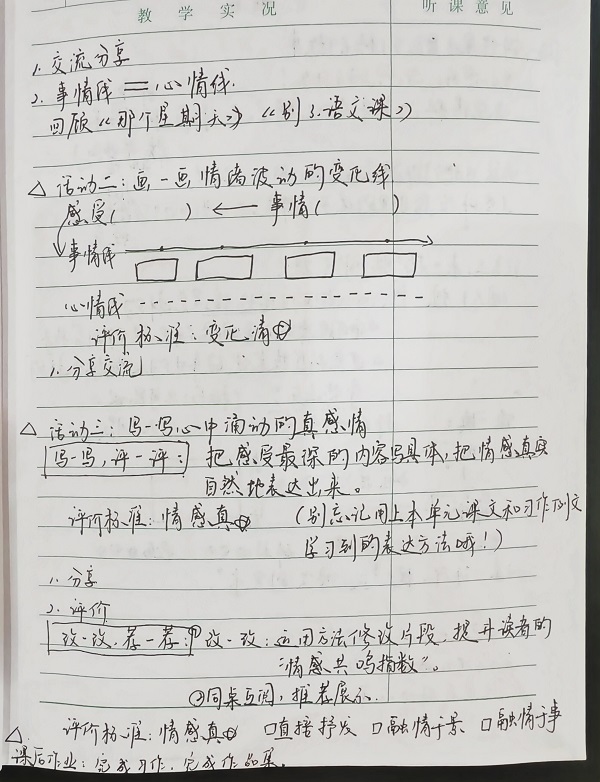 教学实况 听课意见
1. 交流分享
2. 事情线 = 心情线.
回顾《那个星期天》《别了,语文课》
△ 活动二:画一画情绪波动的变化线
感受( ) ← 事情( )
事情线
心情线
评价标准:变化清
1. 分享交流
△ 活动三:写一写心中涌动的真感情
写一写,评一评: 把感受最深的内容写具体,把情感真实
自然地表达出来。
评价标准:情感真 (别忘记用上本单元课文和习作例文
学习到的表达方法哦!)
1. 分享
2. 评价
改一改,荐一荐: ①改一改:运用方法修改片段,提升读者的
"情感共鸣指数"。
②同桌互阅,推荐展示.
△ 评价标准:情感真 □直接抒发 □融情于景 □融情于事
课后作业:完成习作,完成作品集。